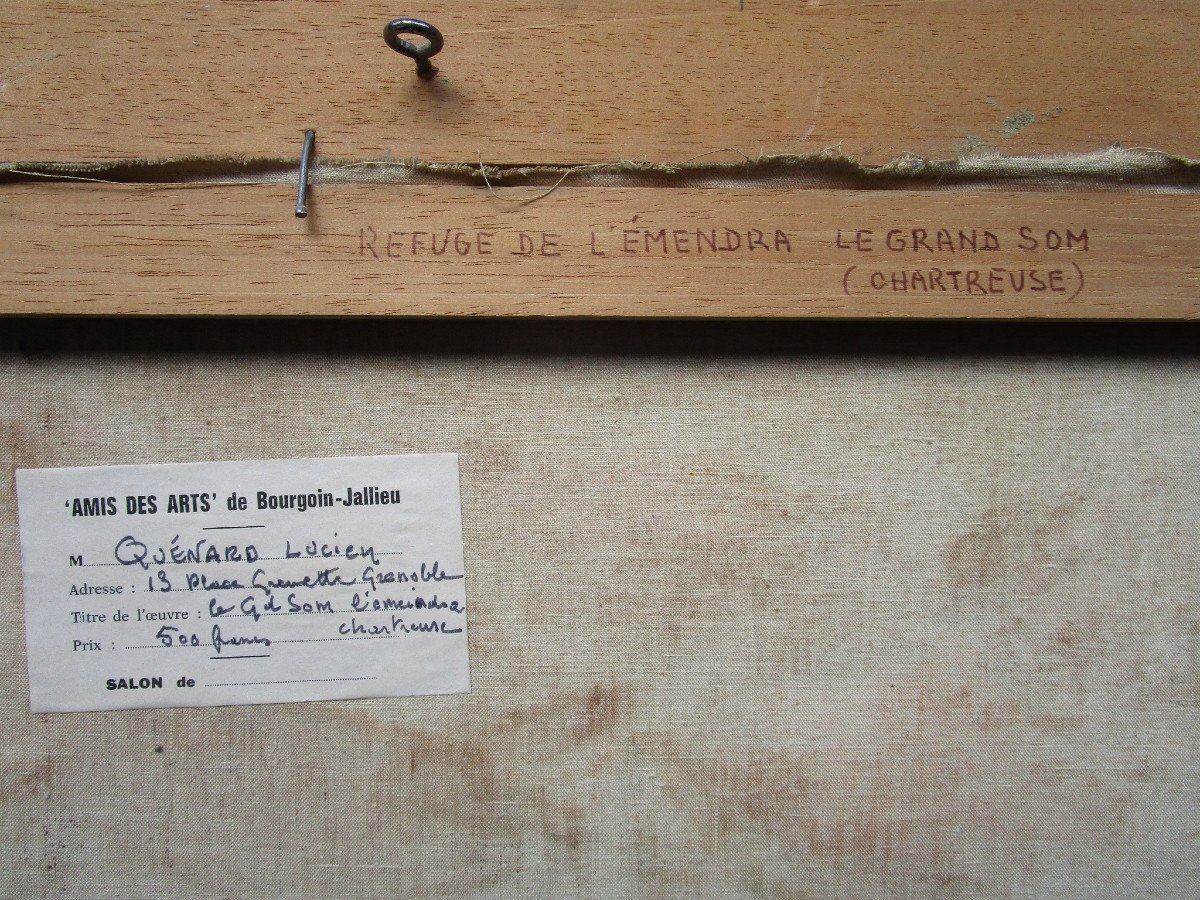 REFUGE DE L'ÉMENDRA LE GRAND SOM
(CHARTREUSE)
'AMIS DES ARTS' de Bourgoin-Jallieu
M QUÉNARD LUCIEN
Adresse : 13 Place Grenette Grenoble
Titre de l'œuvre : le Gd Som l'emeindra
chartreuse
Prix : 500 francs
SALON de